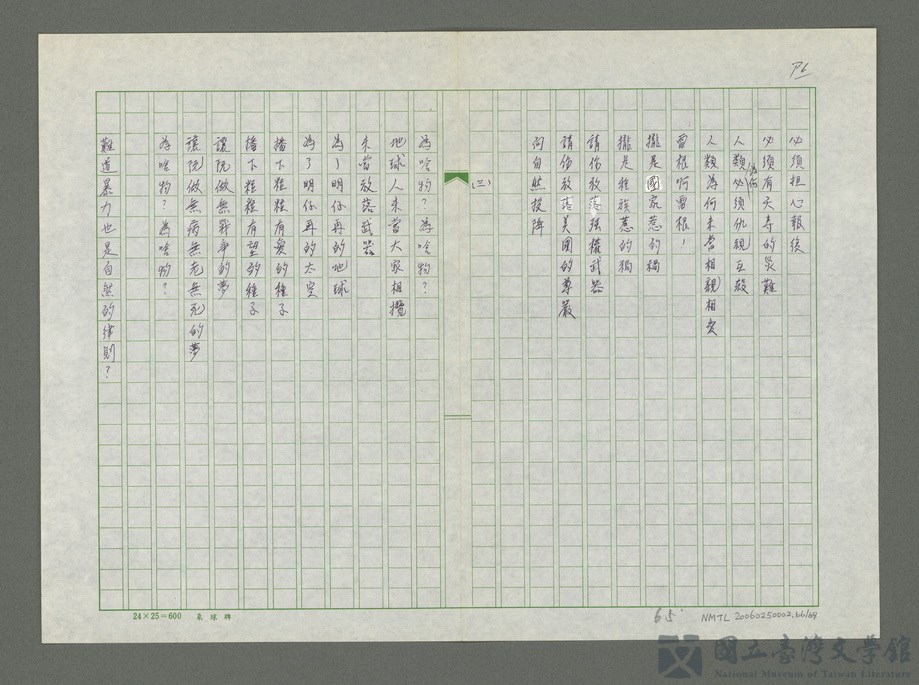 P6
必須担心報後
必須有夭壽的災難
人類為何必須仇視互殺
人類為何未當相親相愛
雷根啊雷根!
攏是國家惹的禍
攏是種族惹的禍
請你放落強權武器
請你放落美國的尊嚴
向自然投降
(三)
為啥物?為啥物?
地球人未當大家相攬
未當放落武器
為了明仔再的地球
為了明仔再的太空
播下粒粒有愛的種子
播下粒粒有望的種子
讓阮做無戰爭的夢
讓阮做無病無老無死的夢
為啥物?為啥物?
難道暴力也是自然的律則?
24×25=600
象球牌
65
NMTL 20060250002.66/68
國立臺灣文學館
National Museum of Taiwan Literature